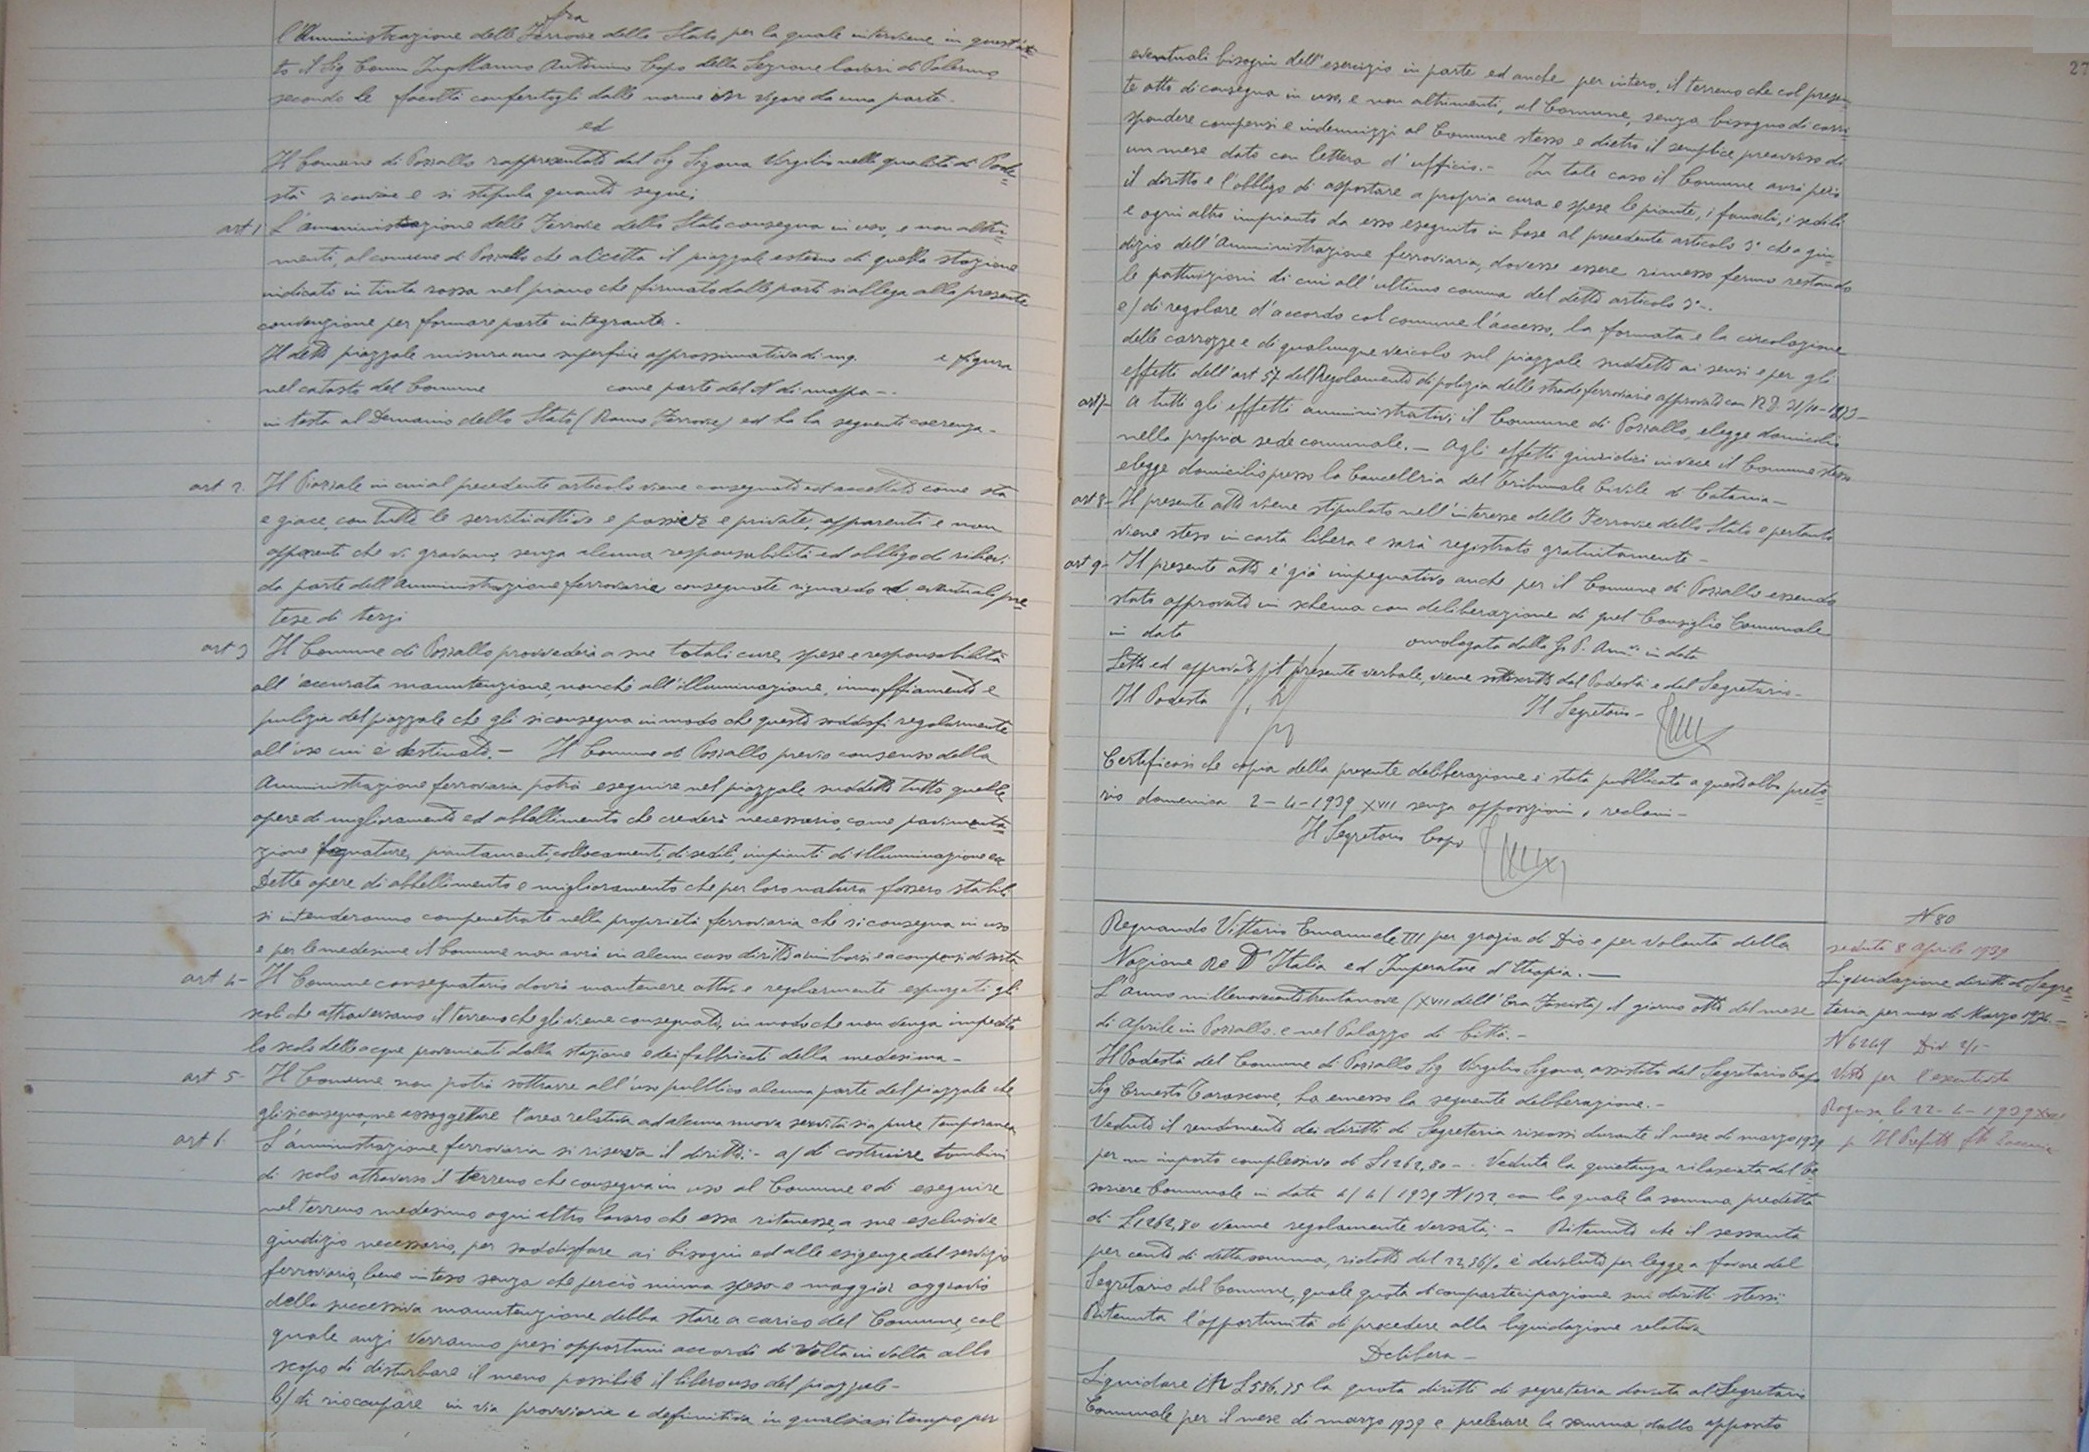 fra
l'Amministrazione delle Ferrovie dello Stato per la quale interviene in quest'at=
to il Sig Comm Ing Manno Antonino Capo della Sezione lavori di Palermo
secondo le facoltà conferitegli dalle norme in vigore da una parte.
ed
Il Comune di Pozzallo rappresentato dal Sig Sigona Virgilio nella qualità di Pode=
stà si conviene e si stipula quanto segue:
art 1 L'amministrazione delle Ferrovie dello Stato consegna in uso, e non altri=
menti, al comune di Pozzallo che accetta il piazzale esterno di quella stazione
indicato in tinta rossa nel piano che firmato dalle parti si allega alla presente
convenzione per formare parte integrante.
Il detto piazzale misura una superficie approssimativa di mq. e figura
nel catasto del Comune come parte del N di mappa -.
in testa al Demanio dello Stato (Ramo Ferrovie) ed ha la seguenti coerenza -
art 2. Il Piazzale in cui al precedente articolo viene consegnato ed accettato come sta
e giace, con tutte le servitù attive e passive e private, apparenti e non
apparenti che vi gravano, senza alcuna responsabilità ed obbligo di rilievi
da parte dell'Amministrazione ferroviaria consegnate riguardo ad eventuale pre=
tese di terzi
art 3 Il Comune di Pozzallo provvederà a sue totali cure, spese e responsabilità
all'accurata manutenzione, nonchè all'illuminazione, innaffiamento e
pulizia del piazzale che gli si consegna in modo che questo soddisfi regolarmente
all'uso cui è destinato. - Il Comune di Pozzallo previo consenso della
Amministrazione ferroviaria potrà eseguire nel piazzale suddetto tutto quelle
opere di miglioramento ed abbellimento che crederà necessario, come pavimenta=
zione fognature, piantamenti, collocamenti, di sedili, impianti di illuminazione ecc
Dette opere di abbellimento e miglioramento che per loro natura fossero stabili
si intenderanno compenetrate nella proprietà ferroviaria che si consegna in uso
e per le medesime il Comune non avrà in alcun caso diritto a rimborsi e a compensi di sorta
art 4- Il Comune consegnatario dovrà mantenere attivi e regolarmente espurgati gli
scoli che attraversano il terreno che gli viene consegnato, in modo che non venga impedito
lo scolo delle acque provenienti dalla stazione e dei fabbricati della medesima -
art 5- Il Comune non potrà sottrarre all'uso pubblico alcuna parte del piazzale che
gli si consegna, ne assoggettare l'area relativa ad alcuna nuova servitù sia pure temporanea
art 6. L'amministrazione ferroviaria si riserva il diritto: - a/ di costruire tombini
di scolo attraverso il terreno che consegna in uso al Comune e di eseguire
nel terreno medesimo ogni altro lavoro che essa ritenesse, a sue esclusive
giudizio necessario, per soddisfare ai bisogni ed alle esigenze del servizio
ferroviario, bene inteso senza che perciò niuna spesa e maggior aggravio
della successiva manutenzione debba stare a carico del Comune, col
quale anzi verranno presi opportuni accordi di volta in volta allo
scopo di disturbare il meno possibile il libero uso del piazzale -
b/ di rioccupare in via provvisoria e definitiva in qualsiasi tempo per
27
eventuali bisogni dell'esercizio in parte ed anche per intero, il terreno che col presen=
te atto di consegna in uso, e non altrimenti, al Comune, senza bisogno di corri=
spondere compensi e indennizzi al Comune stesso e dietro il semplice preavviso di
un mese dato con lettera d'ufficio. - In tale caso il Comune avrà però
il diritto e l'obbligo di asportare a propria cura e spese le piante, i fanali, i sedili
e ogni altro impianto da esso eseguito in base al precedente articolo 3° che a giu=
dizio dell'Amministrazione ferroviaria, dovesse essere rimosso fermo restando
le pattuizioni di cui all'ultimo comma del detto articolo 3° -.
c/ di regolare d'accordo col comune l'accesso, la fermata e la circolazione
delle carrozze e di qualunque veicolo sul piazzale suddetto ai sensi e per gli
effetti dell'art 57 del Regolamento di polizia delle strade ferroviarie approvato con R.D. 31/10-1873-
art 7- A tutti gli effetti amministrativi, il Comune di Pozzallo, elegge domicilio
nella propria sede comunale. - Agli effetti giuridici invece il Comune stesso
elegge domicilio presso la Cancelleria del Tribunale Civile di Catania -
art 8- Il presente atto viene stipulato nell'interesse delle Ferrovie dello Stato e pertanto
viene steso in carta libera e sarà registrato gratuitamente -
art 9- Il presente atto è già impegnativo anche per il Comune di Pozzallo essendo
stato approvato in schema con deliberazione di quel Consiglio Comunale
in data omologata dalla G. P. Amm.va in data
Letto ed approvato il presente verbale, viene sottoscritto dal Podestà e dal Segretario -
Il Podestà Il Segretario -
Certificasi che copia della presente deliberazione è stata pubblicata a quest'albo preto=
rio domenica 2-4-1939 XVII senza opposizioni e reclami -
Il Segretario Capo
Regnando Vittorio Emanuele III per grazia di Dio e per volontà della
Nazione Re D'Italia ed Imperatore d'Etiopia. -
L'Anno millenovecentotrentanove (XVII dell'Era Fascista) il giorno otto del mese
di Aprile in Pozzallo e nel Palazzo di Città. -
Il Podestà del Comune di Pozzallo Sig Virgilio Sigona, assistito dal Segretario Capo
Sig Ernesto Tarascone, ha emesso la seguente deliberazione. -
Veduto il rendimento dei diritti di Segreteria riscossi durante il mese di marzo 1939
per un importo complessivo di £ 1262,80 -. Veduta la quietanza rilasciata dal Te=
soriere Comunale in data 4/4/1939 N 132, con la quale la somma predetta
di £ 1262,80 venne regolarmente versata; - Ritenuto che il sessanta
per cento di detta somma, ridotto del 22,36% è devoluto per legge a favore del
Segretario del Comune, quale quota di compartecipazione sui diritti stessi.
Ritenuta l'opportunità di procedere alla liquidazione relativa
Delibera -
Liquidare in £ 586,75 la quota diritti di segreteria dovuta al Segretario
Comunale per il mese di marzo 1939 e prelevare la somma dallo apposito
N 80
seduta 8 Aprile 1939
Liquidazione diritti di Segre=
teria per mese di Marzo 1939. -
N 6269 Div 2/1-
Visto per l'esecutività
Ragusa, li 22-4-1939 XVII
p. Il Prefetto fto